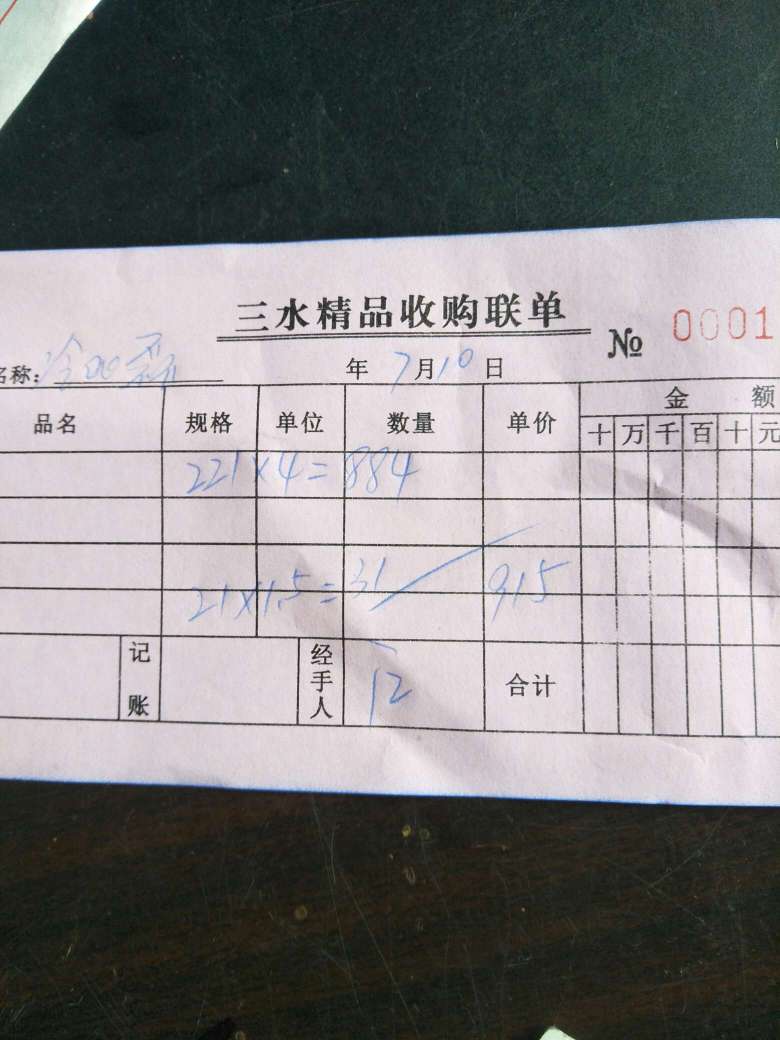 三水精品收购联单
№ 0001
名称:
年 7月10日
品名 规格 单位 数量 单价 金额
十 万 千 百 十 元
221×4=884
21×1.5=31 915
记账 经手人 12 合计